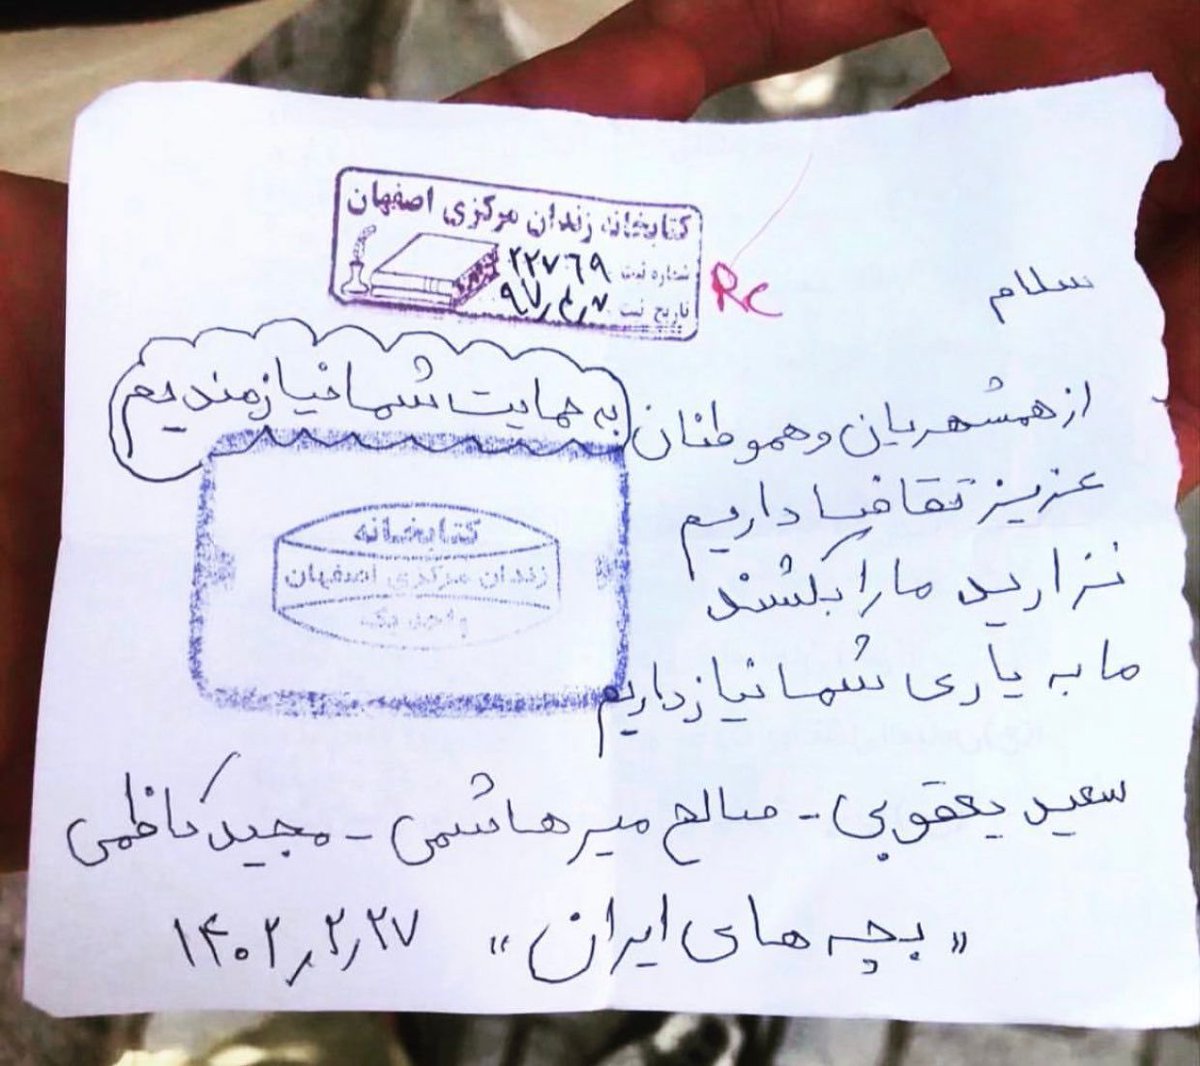 کتابخانه زندان مرکزی اصفهان
شماره ثبت ۲۲۷۶۹
تاریخ ثبت
RC
سلام
از همشهریان و هموطنان
به حمایت شما نیازمندیم
عزیز تقاضا داریم
نزارید ما را بکشند
ما به یاری شما نیاز داریم
کتابخانه
زندان مرکزی اصفهان
واحد یک
سعید یعقوبی - صالح میرهاشمی - مجید کاظمی
«بچه های ایران» ۱۴۰۲٫۲٫۲۷